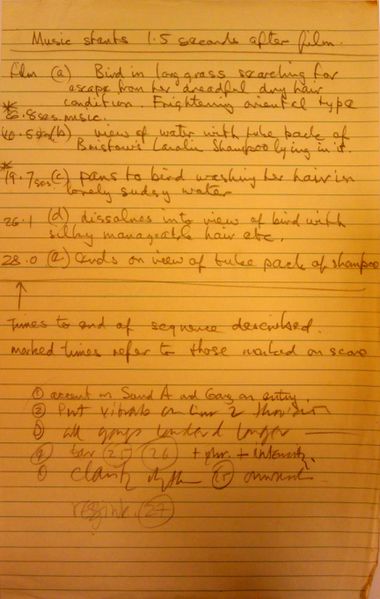 Music starts 1.5 seconds after film.
film (a) Bird in long grass searching for
escape from her dreadful dry hair
condition. Frightening oriental type
* 6.8secs music.
10.5secs (b) view of water with tube pack of
Bristows Lanolin Shampoo lying in it.
* 19.7secs (c) pans to bird washing her hair in
lovely sudsy water
26.1 (d) dissolves into view of bird with
silky manageable hair etc.
28.0 (e) ends on view of tube pack of shampoo
Times to end of sequence described.
marked times refer to those marked on score
① accent on Sand A and Gong on entry.
② Put vibrato on line 2
③ all gongs louder & longer
④ bar 25 (26) + intensity.
clarity
(27)